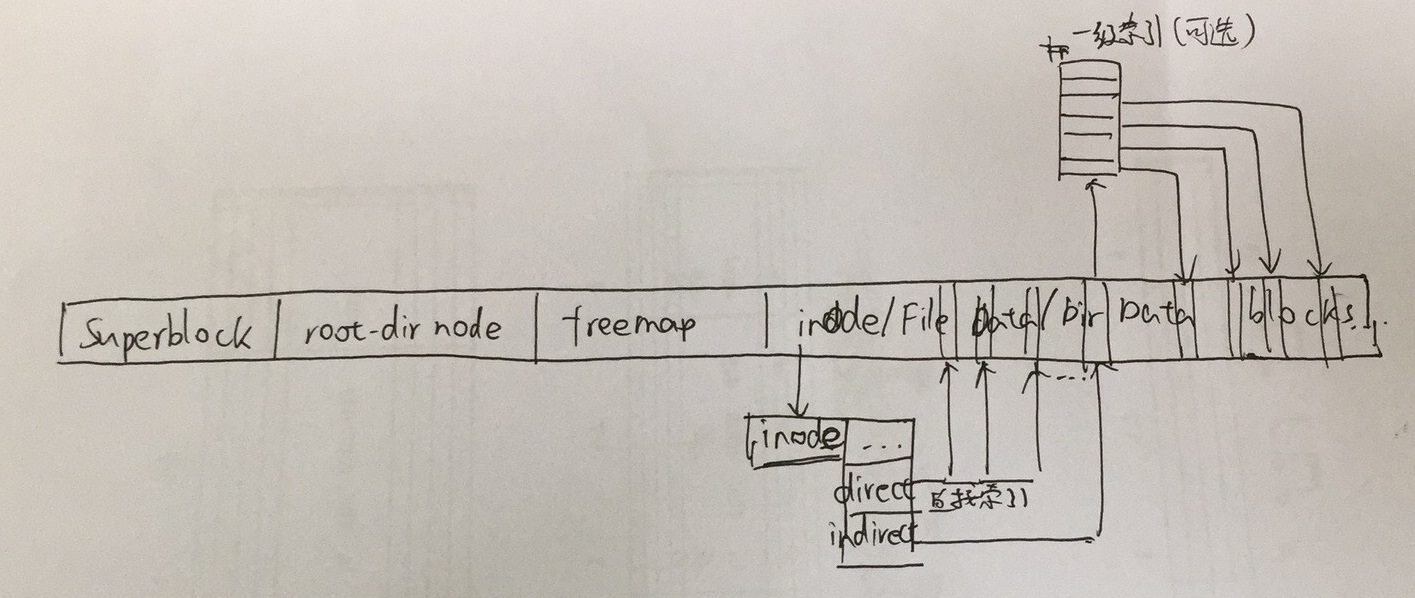 一级索引(可选)
Superblock
root-dir node
freemap
inode/File Data/Dir Data blocks...
....
inode
...
direct
直接索引
indirect